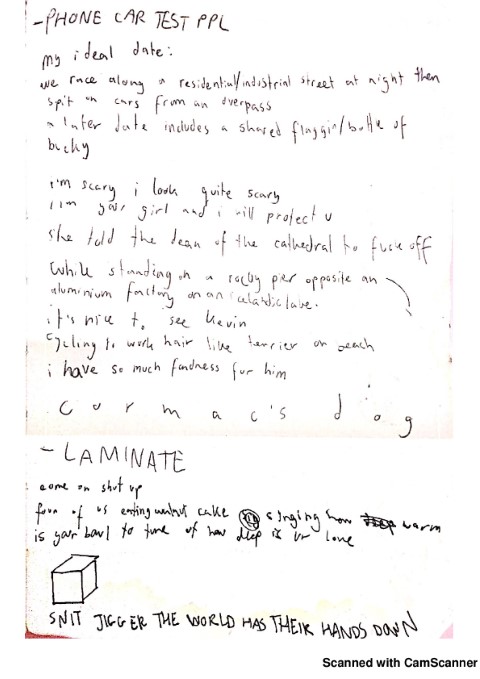 - PHONE CAR TEST PPL
my ideal date:
we race along a residential/industrial street at night then
spit on cars from an overpass
a later date includes a shared flaggin/bottle of
bucky
i'm scary i look quite scary
i'm your girl and i will protect u
she told the dean of the cathedral to fuck off
while standing on a rocky pier opposite an
aluminium factory on an icelandic lake.
it's nice to see kevin
cycling to work hair like terrier on beach
i have so much fondness for him
cormac's dog
- LAMINATE
come on shut up
four of us eating walnut cake singing how warm
is your bowl to tune of how deep is ur love
SNIT JIGGER THE WORLD HAS THEIR HANDS DOWN
Scanned with CamScanner